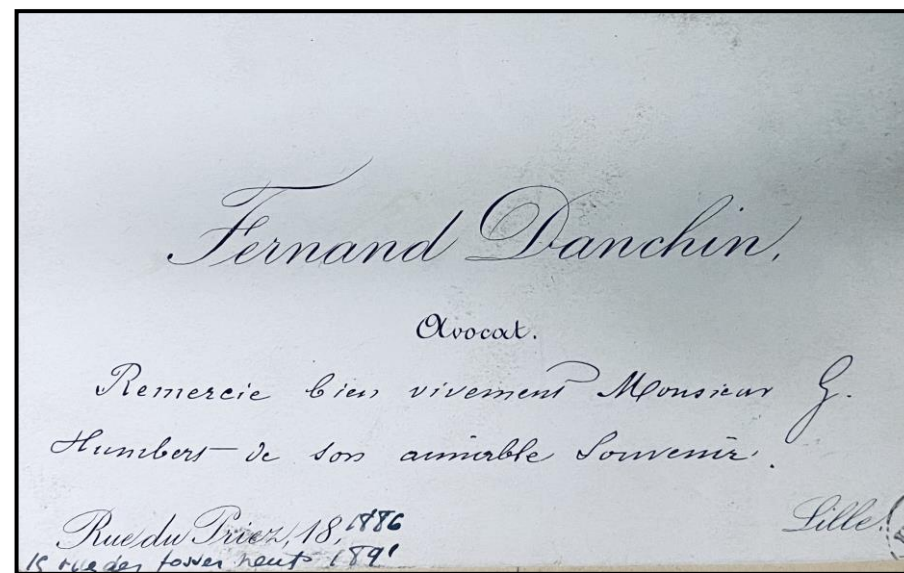 Fernand Danchin,
Avocat.
Remercie bien vivement Monsieur G.
Humbert de son aimable Souvenir.
Rue du Priez, 18, 1886
Lille.
rue des fossés neufs 1891